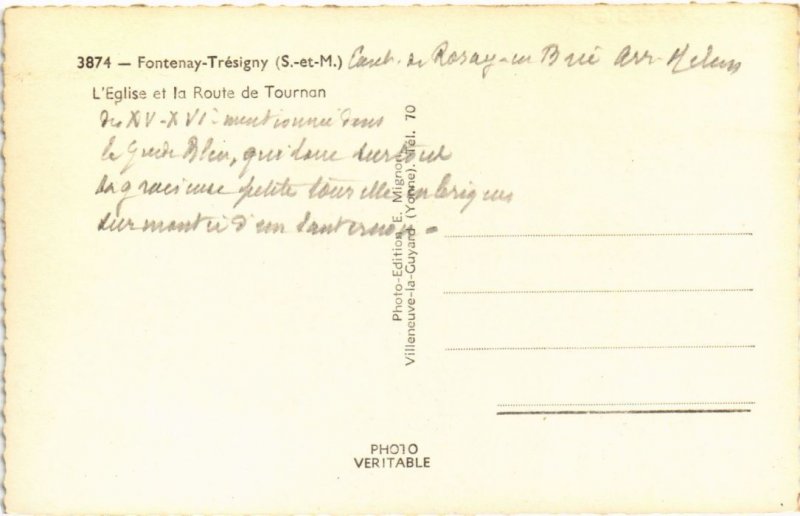 3874 — Fontenay-Trésigny (S.-et-M.) Cant. de Rosay-en Brie Arr. Melun
L'Eglise et la Route de Tournan
des XV-XVIe mentionnée dans
le Guide Bleu, qui loue surtout
sa gracieuse petite tourelle en briques
surmontée d'un lanternon.
Photo-Edition E. Mignon
Villeneuve-la-Guyard (Yonne). Tél. 70
PHOTO
VERITABLE